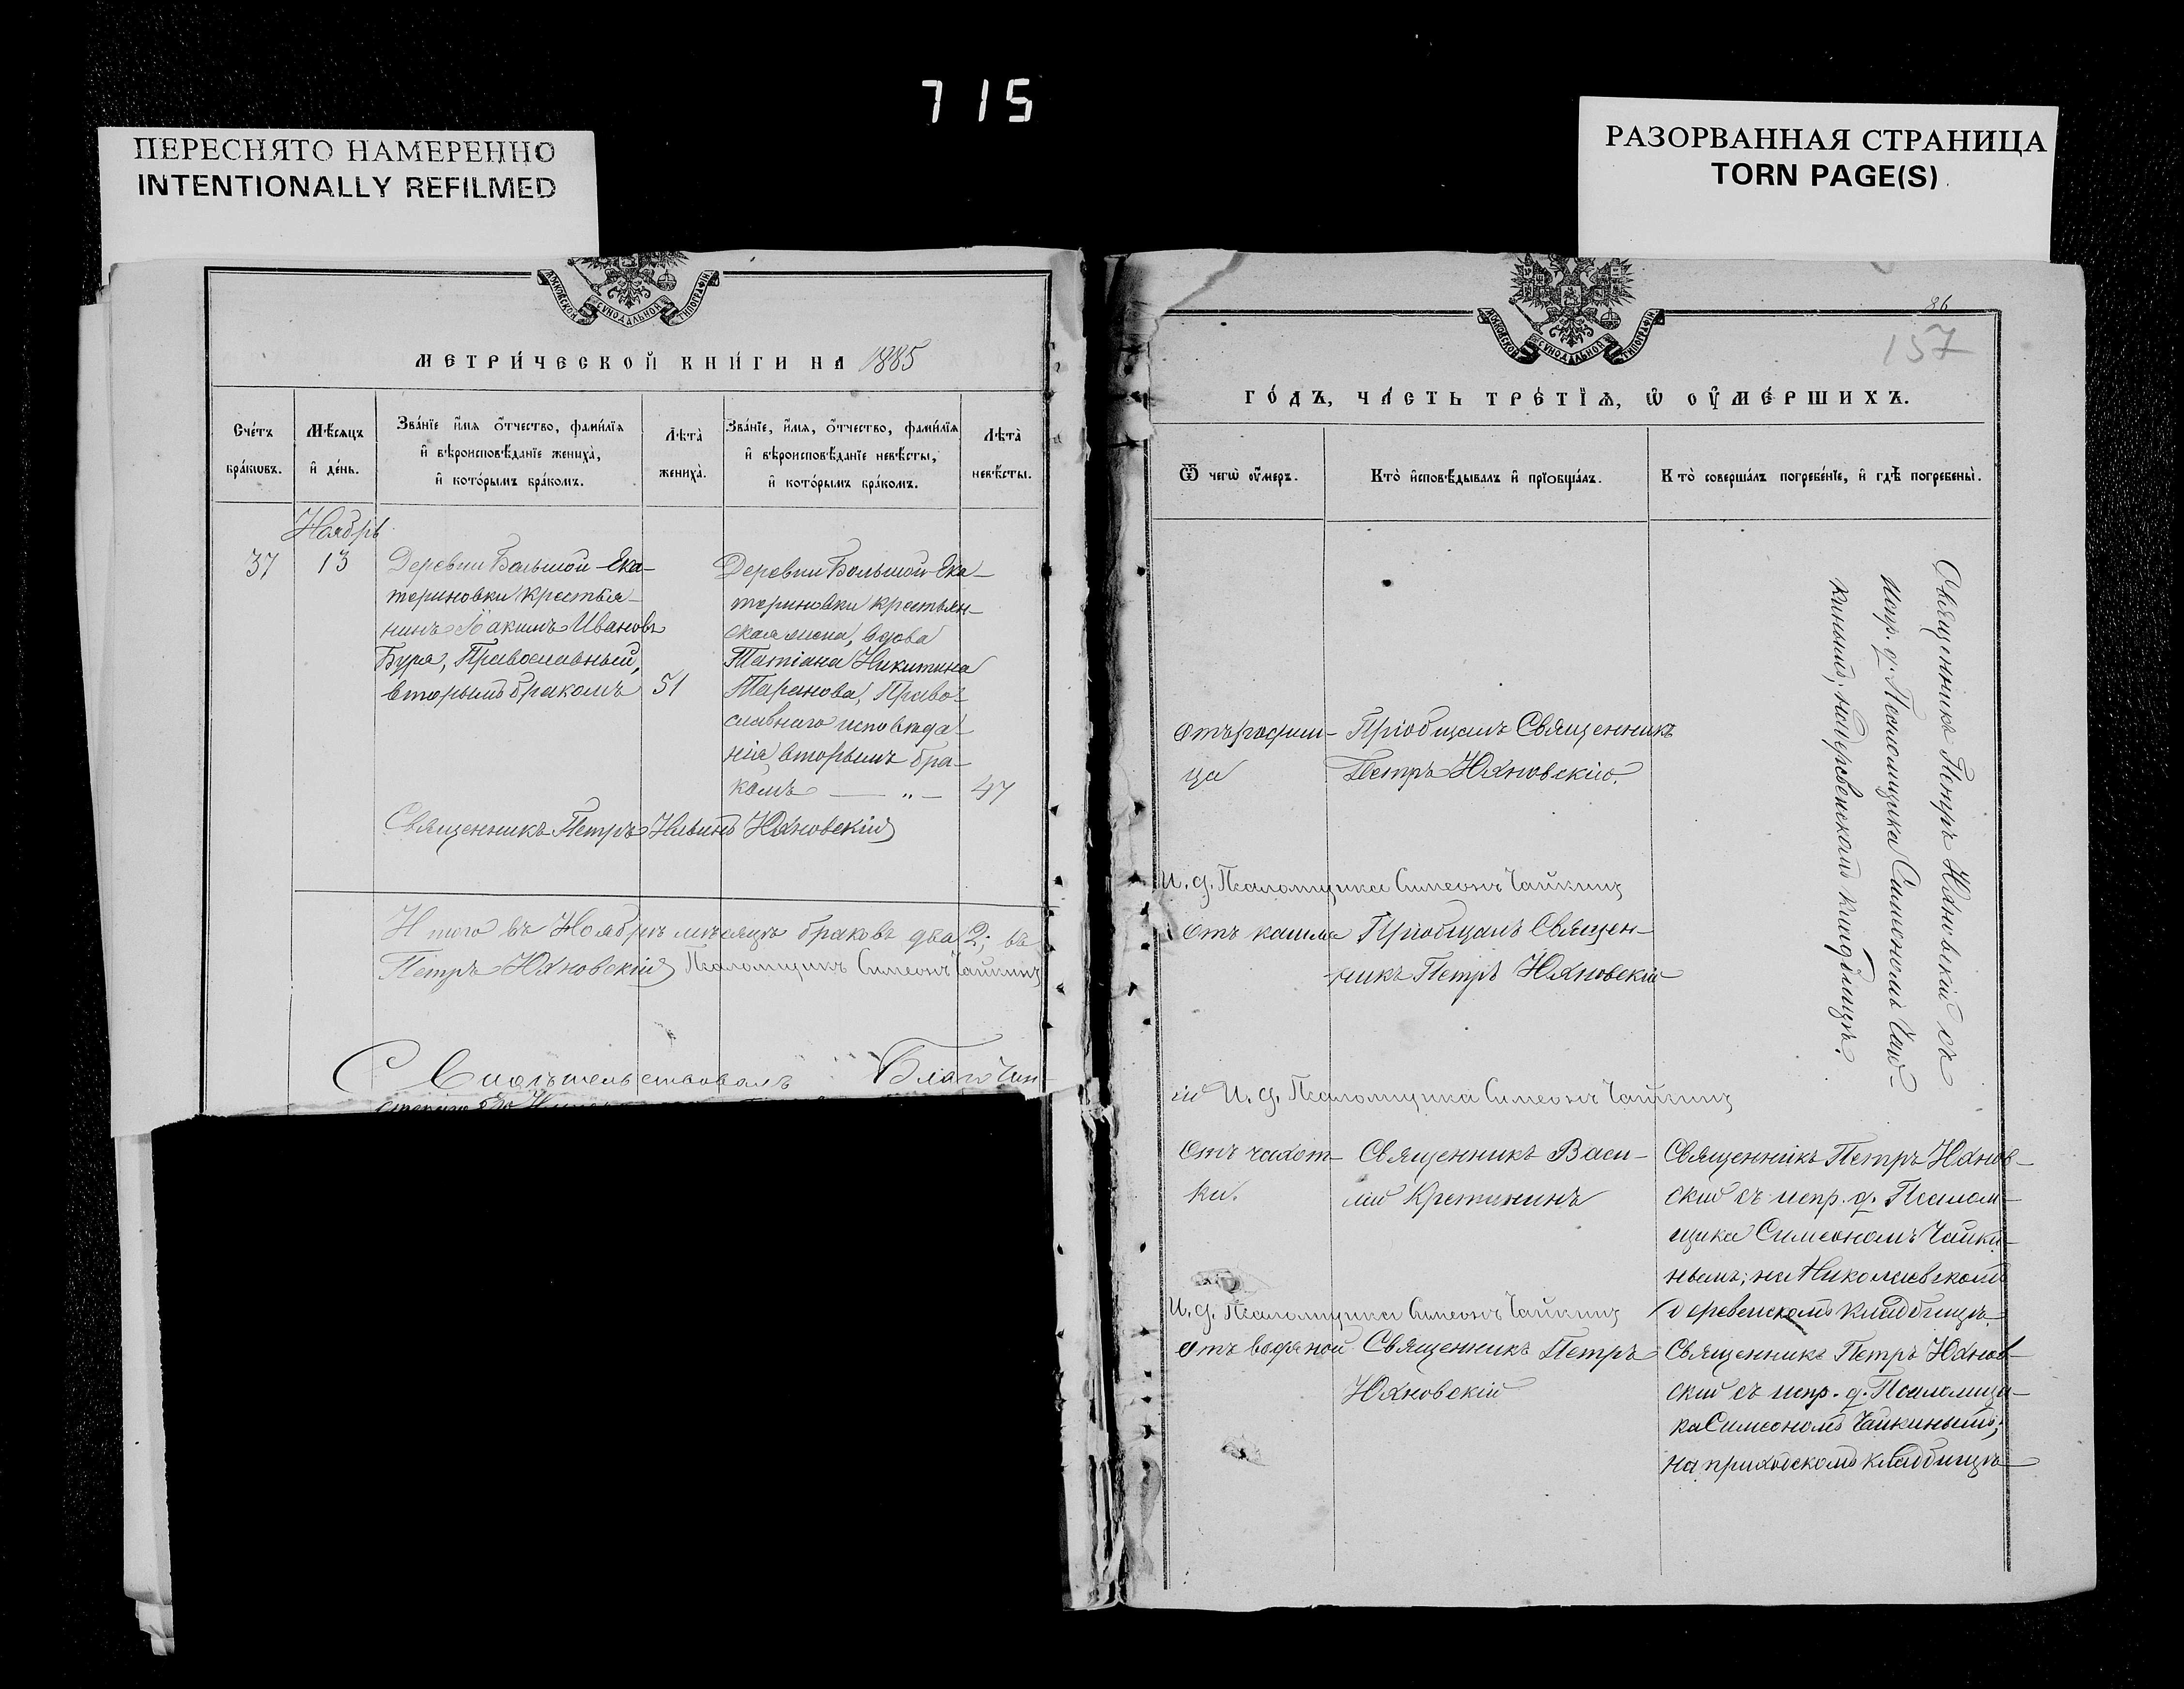 715
ПЕРЕСНЯТО НАМЕРЕННО
INTENTIONALLY REFILMED
РАЗОРВАННАЯ СТРАНИЦА
TORN PAGE(S)
МОСКОВСКОЙ СУНОДАЛЬНОЙ ТИПОГРАФІИ
МЕТРИ́ЧЕСКОЙ КНИ́ГИ НА 1885
Сче́тъ бра́кωвъ.
Мѣ́сяцъ и де́нь.
Зва́нїе и́мя ѻ́тчество, фами́лїя
и вѣроисповѣ́данїе жениха̀,
и кото́рымъ бра́комъ.
Лѣта̀ жениха̀.
Зва́нїе, и́мя, ѻ́тчество, фами́лїя
и вѣроисповѣ́данїе невѣ́сты,
и кото́рымъ бра́комъ.
Лѣта̀ невѣ́сты.
Ноябрь
37
13
Деревни Большой-Ека-
териновки крестья-
нинъ Іоакимъ Ивановъ
Бура, Православный,
вторымъ бракомъ 51
Деревни Большой-Ека-
териновки крестьян-
ская жена, вдова
Татіана Никитина
Таранова, Право-
славнаго исповѣда-
нія вторымъ бра-
комъ — „ — 47
Священникъ Петръ Юхновскій
Итого въ Ноябрѣ мѣсяцѣ браковъ два 2; въ
Петръ Юхновскій Псаломщикъ Симеонъ Чайкинъ
Свидѣтельствовалъ Благочин-
86
157
МОСКОВСКОЙ СУНОДАЛЬНОЙ ТИПОГРАФІИ
ГО́ДЪ, ЧА́СТЬ ТРЕ́ТЇѦ, Ѡ ОУМЕ́РШИХЪ.
Ѿ чегѡ̀ ᲂу҆́меръ.
Кто̀ исповѣ́дывалъ и прїобща́лъ.
Кто̀ соверша́лъ погребе́нїе, и гдѣ̀ погребены̀.
Отъ родим-
ца
Пріобщалъ Священникъ
Петръ Юхновскій.
И. д. Псаломщика Симеонъ Чайкинъ
Отъ кашля
Пріобщалъ Священ-
никъ Петръ Юхновскій
Священникъ Петръ Юхновскій съ
испр. д. Псаломщика Симеономъ Чай-
кинымъ; на деревенскомъ кладбищѣ.
ій И. д. Псаломщика Симеонъ Чайкинъ
Отъ чахот-
ки.
Священникъ Васи-
лій Кретининъ
Священникъ Петръ Юхнов-
скій съ испр. д. Псалом-
щика Симеономъ Чайки-
нымъ; на Николаевскомъ
деревенскомъ кладбищѣ.
И. д. Псаломщика Симеонъ Чайкинъ
Отъ водяной
Священникъ Петръ
Юхновскій
Священникъ Петръ Юхнов-
скій съ испр. д. Псаломщи-
ка Симеономъ Чайкинымъ;
на приходскомъ кладбищѣ